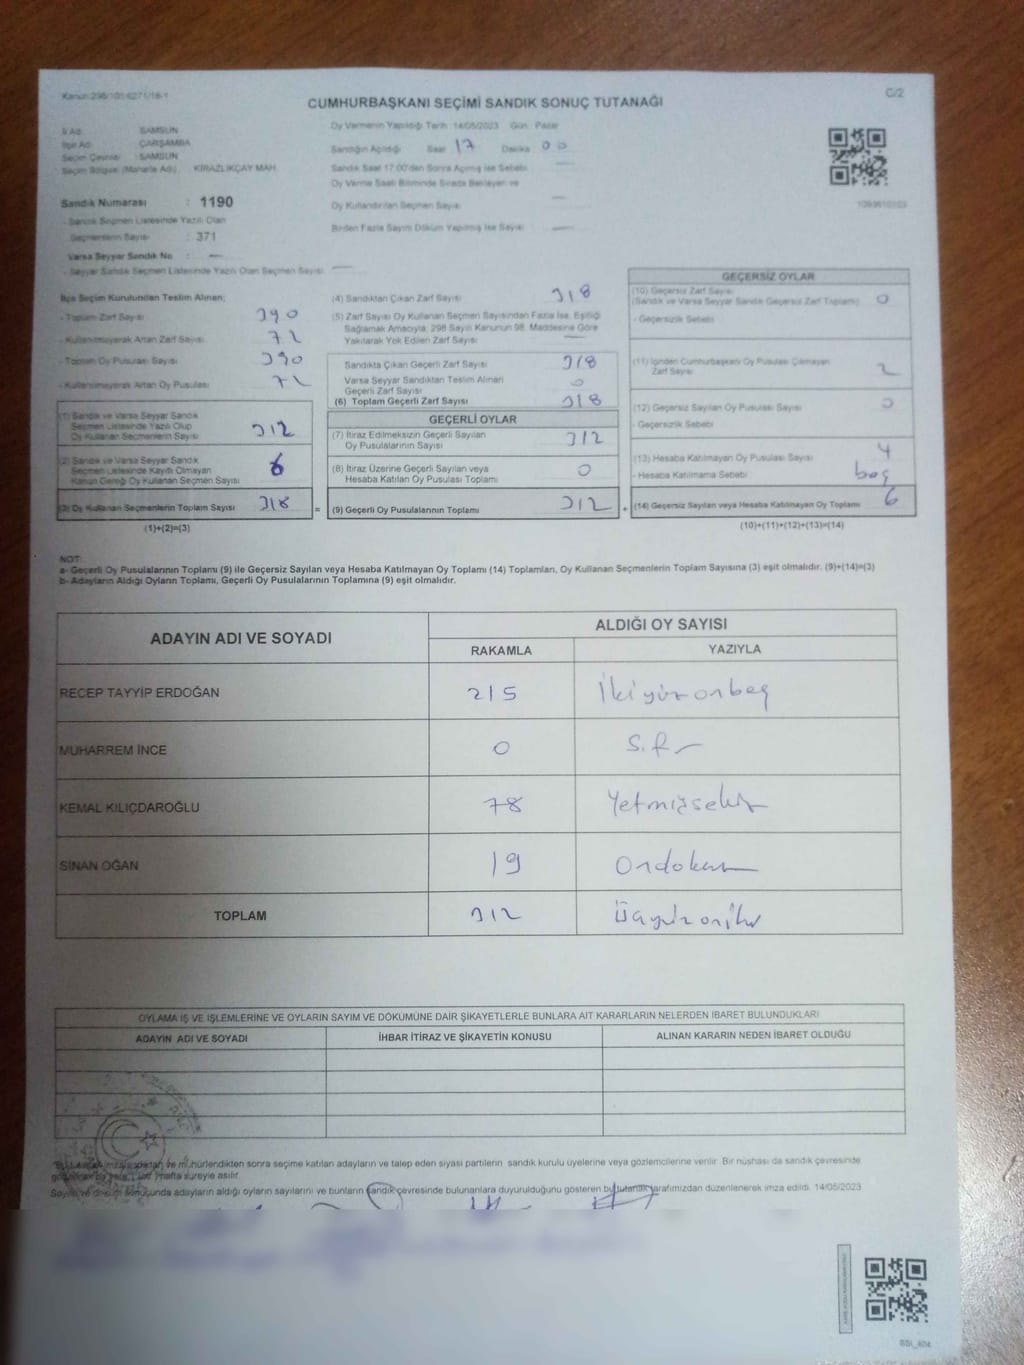 Kanun:298/101-6271/18-1
C/2
CUMHURBAŞKANI SEÇİMİ SANDIK SONUÇ TUTANAĞI
İl Adı : SAMSUN
İlçe Adı : ÇARŞAMBA
Seçim Çevresi : SAMSUN
Seçim Bölgesi (Mahalle Adı) : KİRAZLIKÇAY MAH.
Sandık Numarası : 1190
- Sandık Seçmen Listesinde Yazılı Olan
Seçmenlerin Sayısı : 371
Varsa Seyyar Sandık No : —
- Seyyar Sandık Seçmen Listesinde Yazılı Olan Seçmen Sayısı: —
Oy Vermenin Yapıldığı Tarih: 14/05/2023 Gün: Pazar
Sandığın Açıldığı Saat 17 Dakika 00
Sandık Saat 17.00'den Sonra Açılmış İse Sebebi —
Oy Verme Saati Bitiminde Sırada Bekleyen ve
Oy Kullandırılan Seçmen Sayısı —
Birden Fazla Sayım Döküm Yapılmış İse Sayısı —
İlçe Seçim Kurulundan Teslim Alınan;
- Toplam Zarf Sayısı 390
- Kullanılmayarak Artan Zarf Sayısı 72
- Toplam Oy Pusulası Sayısı 390
- Kullanılmayarak Artan Oy Pusulası 72
(1) Sandık ve Varsa Seyyar Sandık
Seçmen Listesinde Yazılı Olup
Oy Kullanan Seçmenlerin Sayısı 312
(2) Sandık ve Varsa Seyyar Sandık
Seçmen Listesinde Kayıtlı Olmayan
Kanun Gereği Oy Kullanan Seçmen Sayısı 6
(3) Oy Kullanan Seçmenlerin Toplam Sayısı 318 =
(1)+(2)=(3)
(4) Sandıktan Çıkan Zarf Sayısı 318
(5) Zarf Sayısı Oy Kullanan Seçmen Sayısından Fazla İse, Eşitliği
Sağlamak Amacıyla, 298 Sayılı Kanunun 98. Maddesine Göre
Yakılarak Yok Edilen Zarf Sayısı —
Sandıkta Çıkan Geçerli Zarf Sayısı 318
Varsa Seyyar Sandıktan Teslim Alınan
Geçerli Zarf Sayısı 0
(6) Toplam Geçerli Zarf Sayısı 318
GEÇERLİ OYLAR
(7) İtiraz Edilmeksizin Geçerli Sayılan
Oy Pusulalarının Sayısı 312
(8) İtiraz Üzerine Geçerli Sayılan veya
Hesaba Katılan Oy Pusulası Toplamı 0
(9) Geçerli Oy Pusulalarının Toplamı 312 +
GEÇERSİZ OYLAR
(10) Geçersiz Zarf Sayısı
(Sandık ve Varsa Seyyar Sandık Geçersiz Zarf Toplamı) 0
- Geçersizlik Sebebi
(11) İçinden Cumhurbaşkanı Oy Pusulası Çıkmayan
Zarf Sayısı 2
(12) Geçersiz Sayılan Oy Pusulası Sayısı 0
- Geçersizlik Sebebi
(13) Hesaba Katılmayan Oy Pusulası Sayısı 4
- Hesaba Katılmama Sebebi boş
(14) Geçersiz Sayılan veya Hesaba Katılmayan Oy Toplamı 6
(10)+(11)+(12)+(13)=(14)
NOT:
a- Geçerli Oy Pusulalarının Toplamı (9) ile Geçersiz Sayılan veya Hesaba Katılmayan Oy Toplamı (14) Toplamları, Oy Kullanan Seçmenlerin Toplam Sayısına (3) eşit olmalıdır. (9)+(14)=(3)
b- Adayların Aldığı Oyların Toplamı, Geçerli Oy Pusulalarının Toplamına (9) eşit olmalıdır.
ADAYIN ADI VE SOYADI
ALDIĞI OY SAYISI
RAKAMLA YAZIYLA
RECEP TAYYİP ERDOĞAN 215 İkiyüzonbeş
MUHARREM İNCE 0 Sıfır
KEMAL KILIÇDAROĞLU 78 Yetmişsekiz
SİNAN OĞAN 19 Ondokuz
TOPLAM 312 Üçyüzoniki
OYLAMA İŞ VE İŞLEMLERİNE VE OYLARIN SAYIM VE DÖKÜMÜNE DAİR ŞİKAYETLERLE BUNLARA AİT KARARLARIN NELERDEN İBARET BULUNDUKLARI
ADAYIN ADI VE SOYADI İHBAR İTİRAZ VE ŞİKAYETİN KONUSU ALINAN KARARIN NEDEN İBARET OLDUĞU
ve mühürlendikten sonra seçime katılan adayların ve talep eden siyasi partilerin sandık kurulu üyelerine veya gözlemcilerine verilir. Bir nüshası da sandık çevresinde
hafta süreyle asılır.
sonucunda adayların aldığı oyların sayılarını ve bunların sandık çevresinde bulunanlara duyurulduğunu gösteren bu tutanak tarafımızdan düzenlenerek imza edildi. 14/05/2023